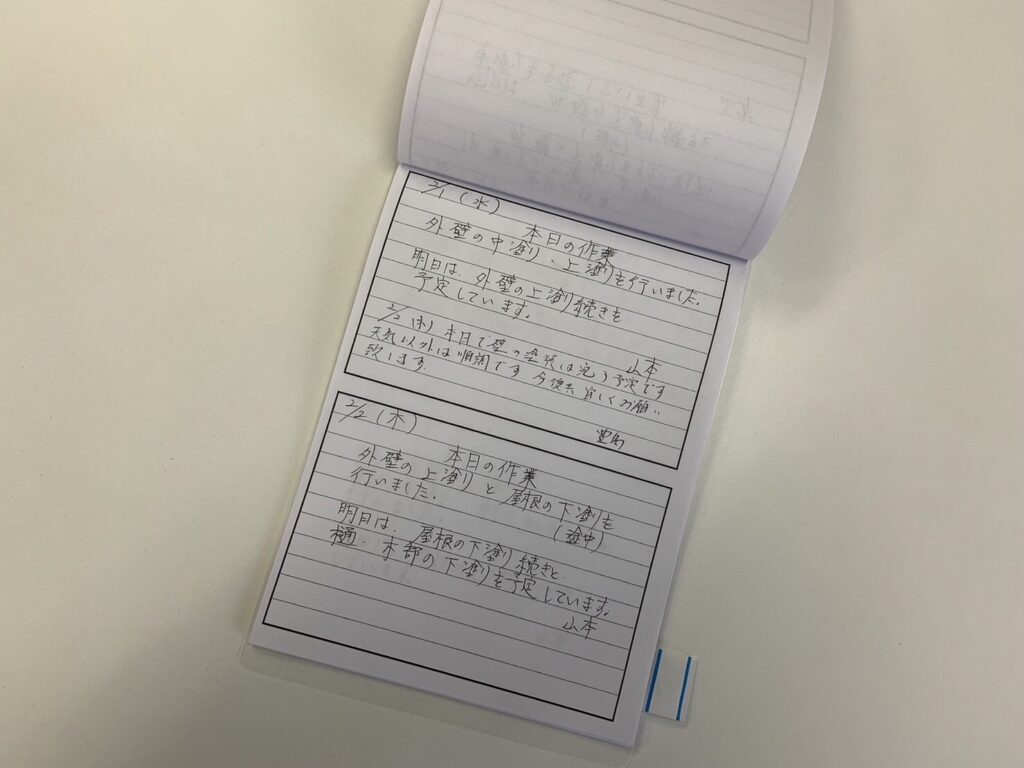 2/1(水)
本日の作業
外壁の中塗り・上塗りを行いました。
明日は、外壁の上塗り続きを
予定しています。
山本
2/2(木) 本日で壁の塗装は完了予定です
天気以外は順調です 今後共宜しくお願い
致します.
2/2(木)
本日の作業
外壁の上塗りと屋根の下塗りを
行いました。(途中)
明日は、屋根の下塗り続きと、
樋・木部の下塗りを予定しています。
山本